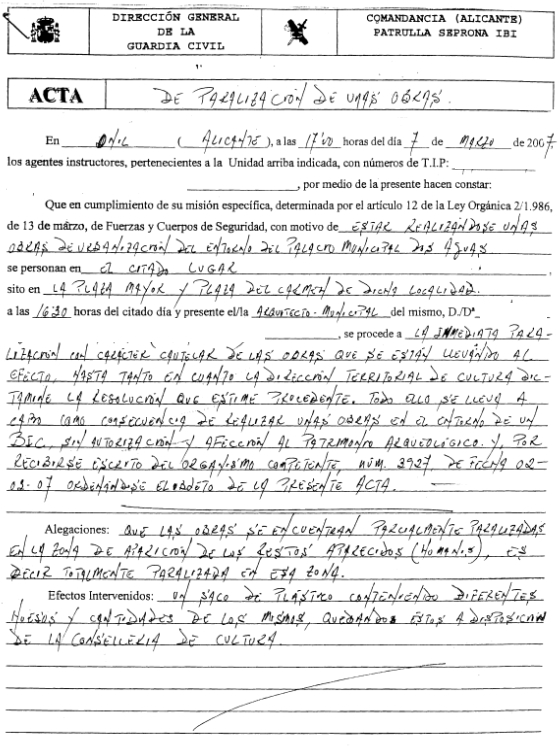 DIRECCIÓN GENERAL
DE LA
GUARDIA CIVIL
COMANDANCIA (ALICANTE)
PATRULLA SEPRONA IBI
ACTA DE PARALIZACION DE UNAS OBRAS.
En ONIL ( ALICANTE ), a las 17'00 horas del día 7 de MARZO de 2007
los agentes instructores, pertenecientes a la Unidad arriba indicada, con números de T.I.P:
, por medio de la presente hacen constar:
Que en cumplimiento de su misión específica, determinada por el artículo 12 de la Ley Orgánica 2/1.986,
de 13 de márzo, de Fuerzas y Cuerpos de Seguridad, con motivo de ESTAR REALIZANDOSE UNAS
OBRAS DE URBANIZACION DEL ENTORNO DEL PALACIO MUNICIPAL DOS AGUAS
se personan en EL CITADO LUGAR
sito en LA PLAZA MAYOR Y PLAZA DEL CARMEN DE DICHA LOCALIDAD.
a las 16:30 horas del citado día y presente el/la ARQUITECTO-MUNICIPAL del mismo, D./Dª
, se procede a LA INMEDIATA PARA-
LIZACION CON CARACTER CAUTELAR DE LAS OBRAS QUE SE ESTAN LLEVANDO AL
EFECTO, HASTA TANTO EN CUANTO LA DIRECCION TERRITORIAL DE CULTURA DIC-
TAMINE LA RESOLUCION QUE ESTIME PROCEDENTE. TODO ELLO SE LLEVA A
CABO COMO CONSECUENCIA DE REALIZAR UNAS OBRAS EN EL ENTORNO DE UN
BIC, SIN AUTORIZACION Y AFECCION AL PATRIMONIO ARQUEOLOGICO. Y, POR
RECIBIRSE ESCRITO DEL ORGANISMO COMPETENTE, NUM. 3927 DE FECHA 02-
03-07 ORDENANDOSE EL OBJETO DE LA PRESENTE ACTA.
Alegaciones: QUE LAS OBRAS SE ENCUENTRAN PARCIALMENTE PARALIZADAS
EN LA ZONA DE APARICION DE LOS RESTOS APARECIDOS (HUMANOS), ES
DECIR TOTALMENTE PARALIZADA EN ESA ZONA.
Efectos Intervenidos: UN SACO DE PLASTICO CONTENIENDO DIFERENTES
HUESOS Y CANTIDADES DE LOS MISMOS, QUEDANDOS ESTOS A DISPOSICION
DE LA CONSELLERIA DE CULTURA